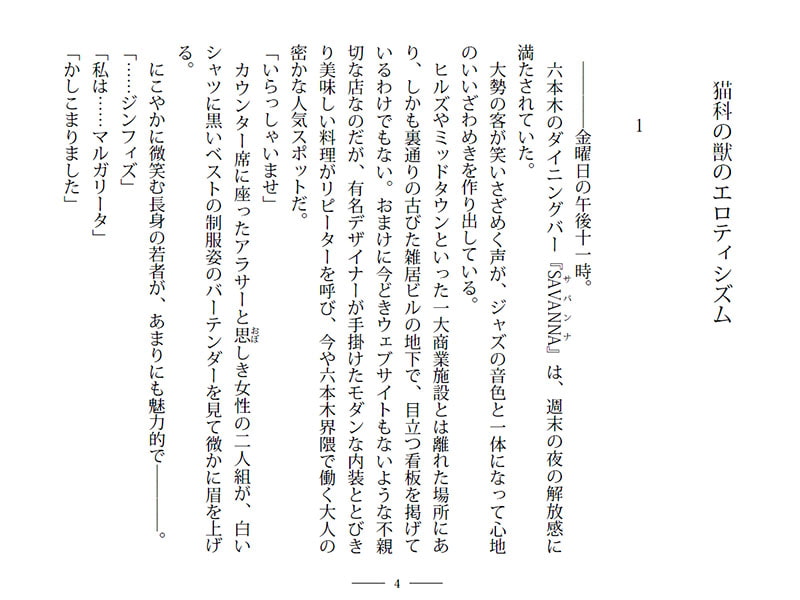 猫科の獣のエロティシズム
1
――――金曜日の午後十一時。
六本木のダイニングバー『SAVANNA』は、週末の夜の解放感に
サバンナ
満たされていた。
大勢の客が笑いさざめく声が、ジャズの音色と一体になって心地
のいいざわめきを作り出している。
ヒルズやミッドタウンといった一大商業施設とは離れた場所にあ
り、しかも裏通りの古びた雑居ビルの地下で、目立つ看板を掲げて
いるわけでもない。おまけに今どきウェブサイトもないような不親
切な店なのだが、有名デザイナーが手掛けたモダンな内装ととびき
り美味しい料理がリピーターを呼び、今や六本木界隈で働く大人の
密かな人気スポットだ。
「いらっしゃいませ」
カウンター席に座ったアラサーと思しき女性の二人組が、白い
おぼ
シャツに黒いベストの制服姿のバーテンダーを見て微かに眉を上げ
る。
にこやかに微笑む長身の若者が、あまりにも魅力的で――――。
「……ジンフィズ」
「私は……マルガリータ」
「かしこまりました」
4